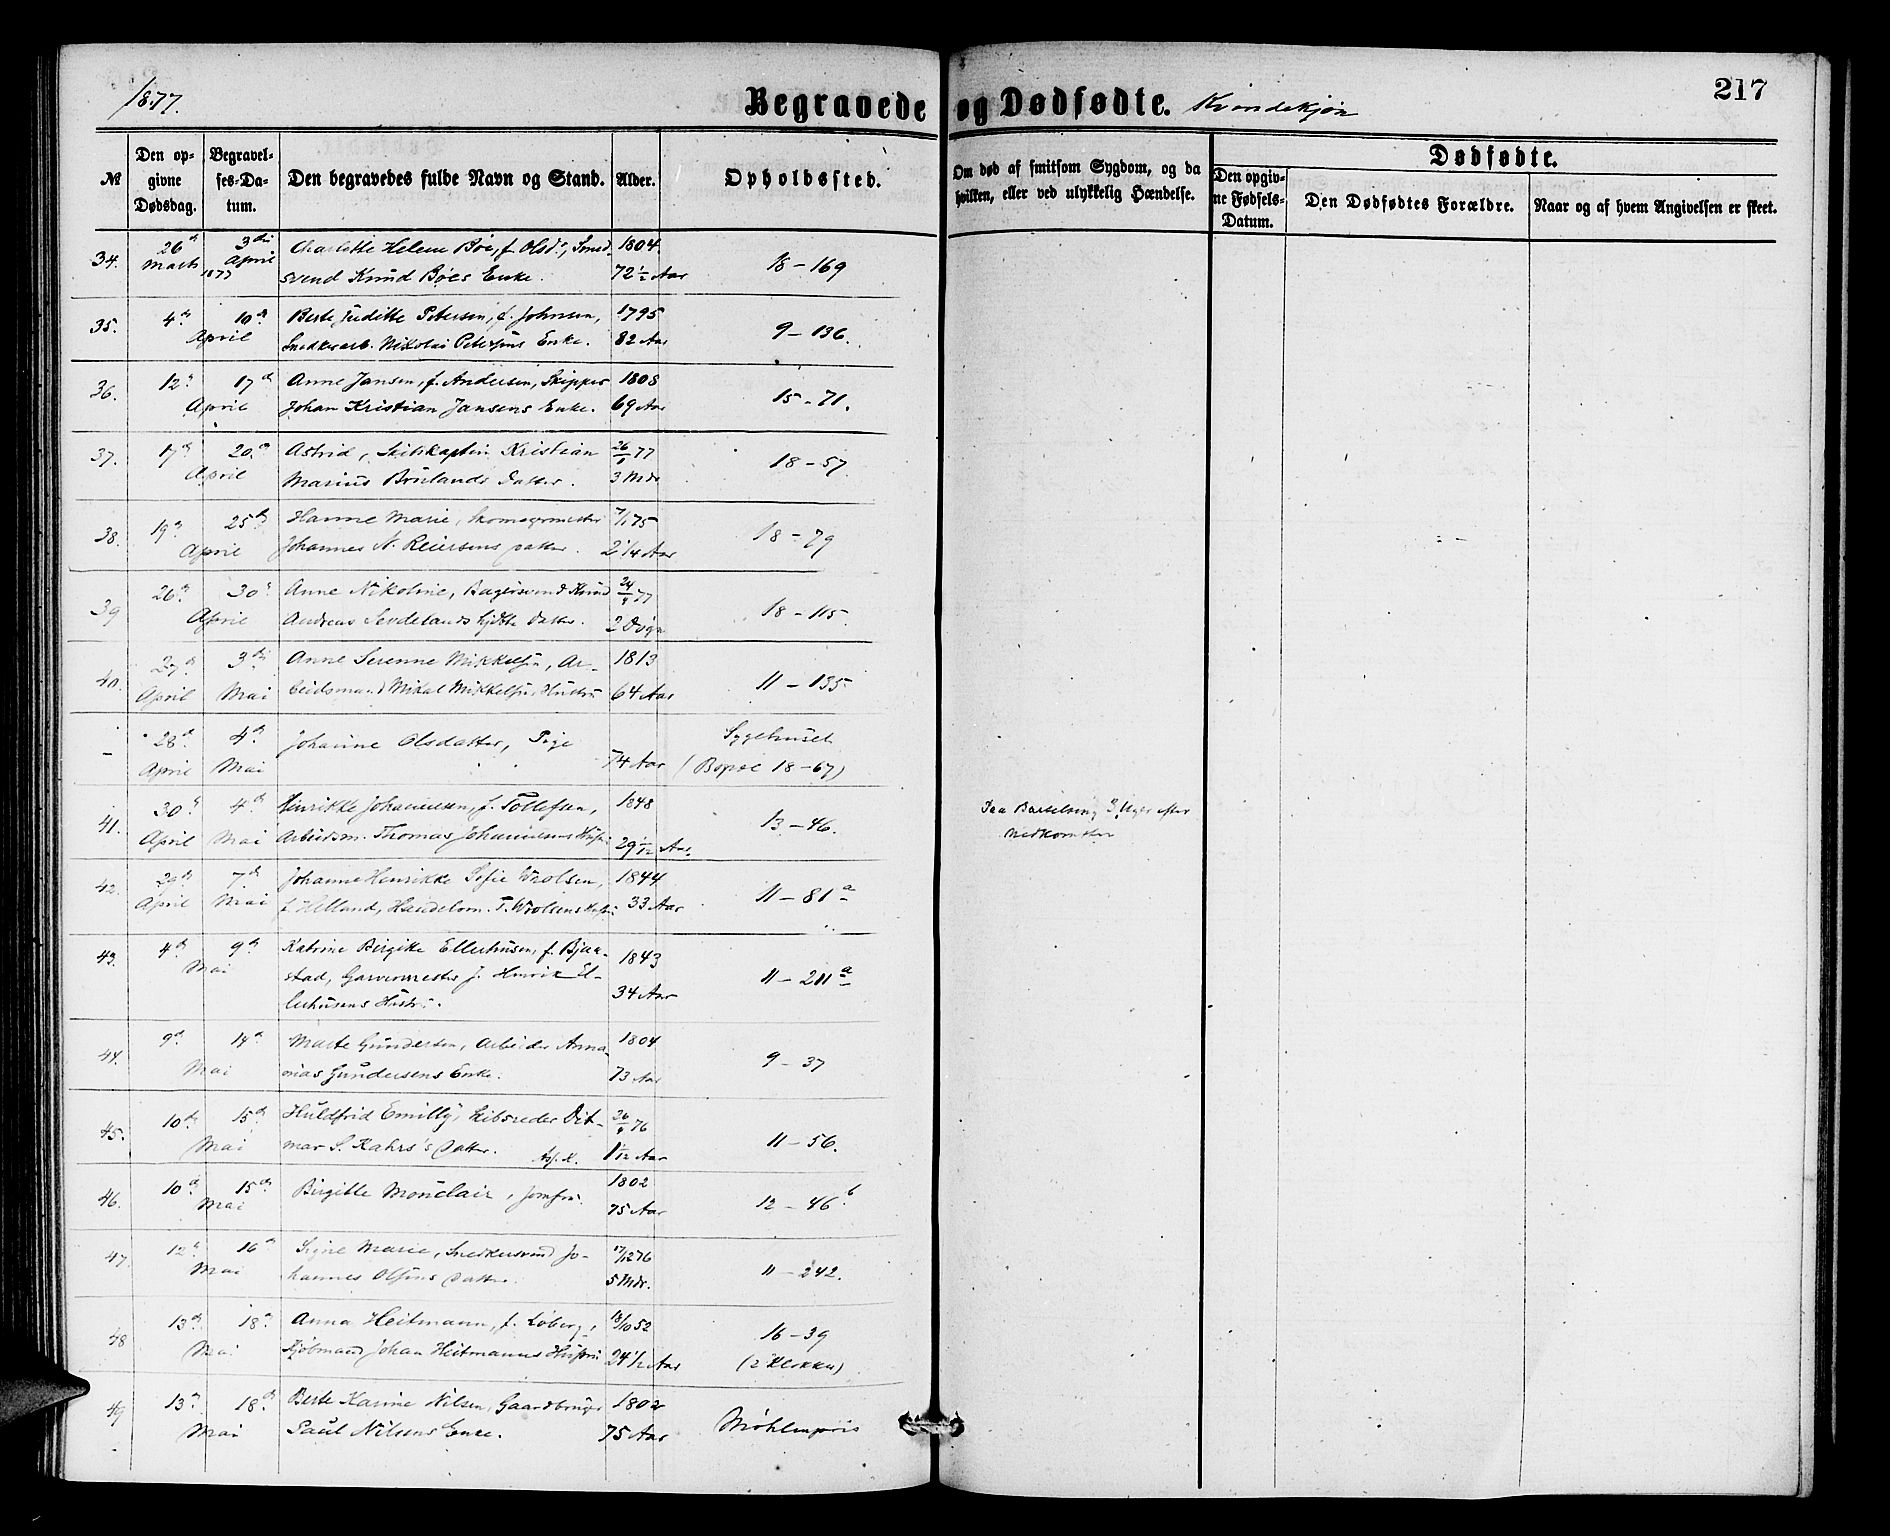 1877.
Begravede og Dødfødte. Kvindekjøn
217
№
Den opgivne Dødsdag.
Begravelses-Datum.
Den begravedes fulde Navn og Stand.
Alder.
Opholdssted.
Om død af smitsom Sygdom, og da
hvilken, eller ved ulykkelig Hændelse.
Dødfødte.
Den opgivne Fødsels-Datum.
Den Dødfødtes Forældre.
Naar og af hvem Angivelsen er skeet.
34. 26de Marts 3die April 1877 Charlotte Helene Böe, f. Olsd., Smed- 1804
svend Knud Böes Enke. 72 1/2 Aar 18 - 169
35. 4de 10de April Berte Juditte Petersen, f. Johnsen, 1795
Snedkerarb. Nikolai Petersens Enke. 82 Aar 9 - 136.
36. 12 17de April Anne Jansen, f. Andersen, Skipper 1808
Johan Kristian Jansens Enke. 69 Aar 15 - 71.
37. 17de 20de April Astrid, Skibskaptein Kristian 26/1 77
Marius Datter. 3 Mdr 18 - 57
38. 19de 25de April Hanne Marie, Skomagermester 7/1 75
Johannes N. Reiersens Datter. 2 1/4 Aar 18 - 79
39 26de 30 April Anne Nikoline, Bagersvend Knud 24/4 77
Andreas Datter. 2 Døgn 18 - 115.
40. 27de April 3die Mai Anne Serenne Mikkelsen, Ar-
beidsmand Mikal Mikkelsens Hustru 1813 64 Aar 11 - 135
- 28de April 4de Mai Johanne Olsdatter, Pige 74 Aar Sygehuset
(Bopæl 18-67)
41. 30 April 4de Mai Henrikke Johannesen, f. Tollefsen, 1848
Arbeidsm. Thomas Johannesens Hustru 29 1/12 Aar. 13 - 46. Paa Barselseng 3 Uger efter
Nedkomsten
42. 29de April 7de Mai Johanne Henrikke Sofie Wrolsen, 1844
f. Helland, Handelsm. T. Wrolsens Hustru 33 Aar 11 - 81 a
43. 4de 9de Mai Katrine Birgitte Ellerhusen, f. Bjer- 1843
stad, Garvermester J. Henrik El-
lerhusens Hustru. 34 Aar 11 - 211 a
44. 9de 14de Mai Marte Gundersen, Arbeider Anna- 1804
nias Gundersens Enke. 73 Aar 9 - 37
45. 10de 15de Mai Huldfrid Emilly, Skibsreder Dit- 26/4 76
mar S. Kahrs's Datter. 1 1/12 Aar 11 - 56.
46. 10de 15de Mai Birgitte Monclair, Jomfru. 1802
75 Aar 12 - 46 b
47. 12 16de Mai Signe Marie, Snedkersvend Jo- 17/12 76
hannes Olsens Datter. 5 Mdr. 11 - 242.
48 13de 18de Mai Anna Heitmann, f. Loberg, 18/10 52
Kjøbmand Johan Heitmanns Hustru 24 1/2 Aar 16 - 39
(2 Klokker)
49 13 18de Mai Berte Karine Nilsen, Gaardbruger 1802
Paul Nilsens Enke. 75 Aar Møhlenpris